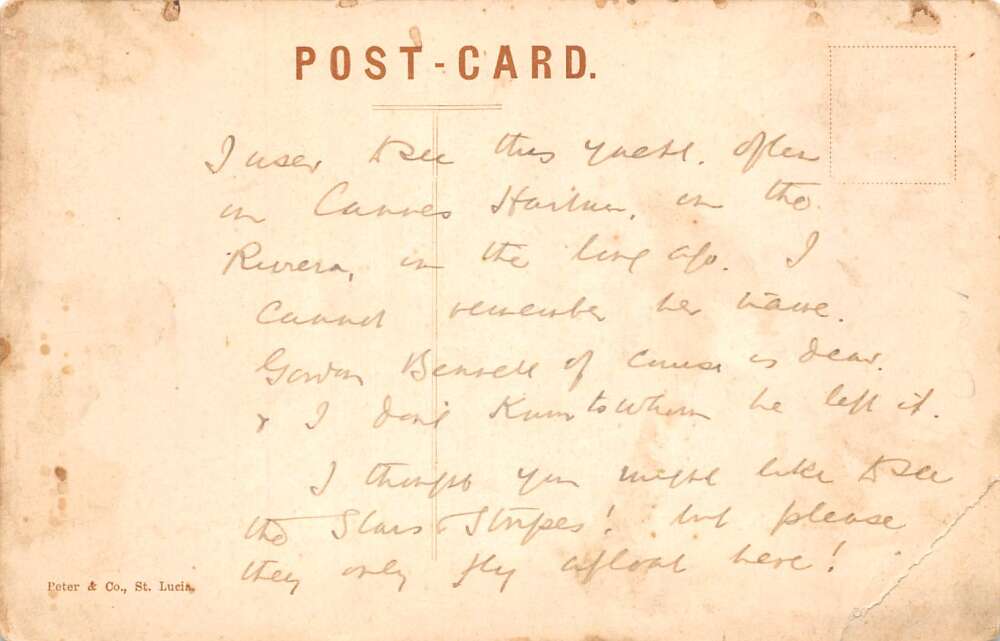 POST-CARD.
I used to see this yacht. often
in Cannes Harbour, in the
Riviera, in the long ago. I
cannot remember her name.
Gordon Bennett of course is dead.
& I don't know to whom he left it.
I thought you might like to see
the Stars & Stripes! but please
they only fly afloat here!
Peter & Co., St. Lucia.